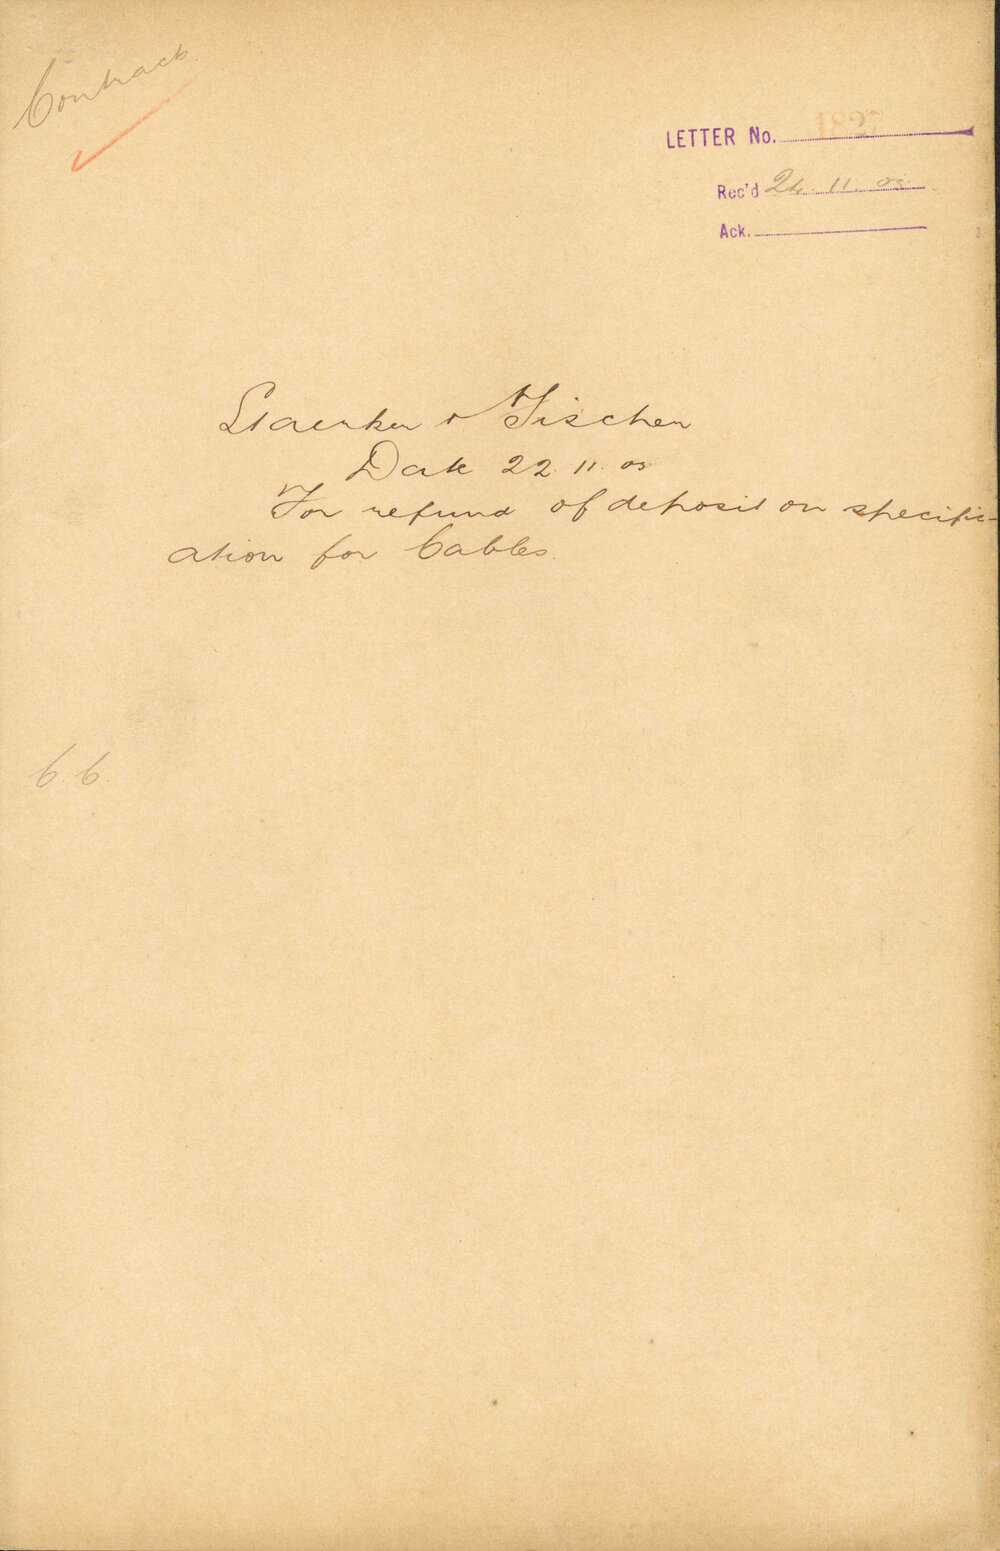 Contracts
LETTER No. 1827
Rec'd 24. 11. 05.
Ack.
Staerker & Fischer
Date 22. 11. 05
For refund of deposit on specific-
ation for Cables.
C. C.